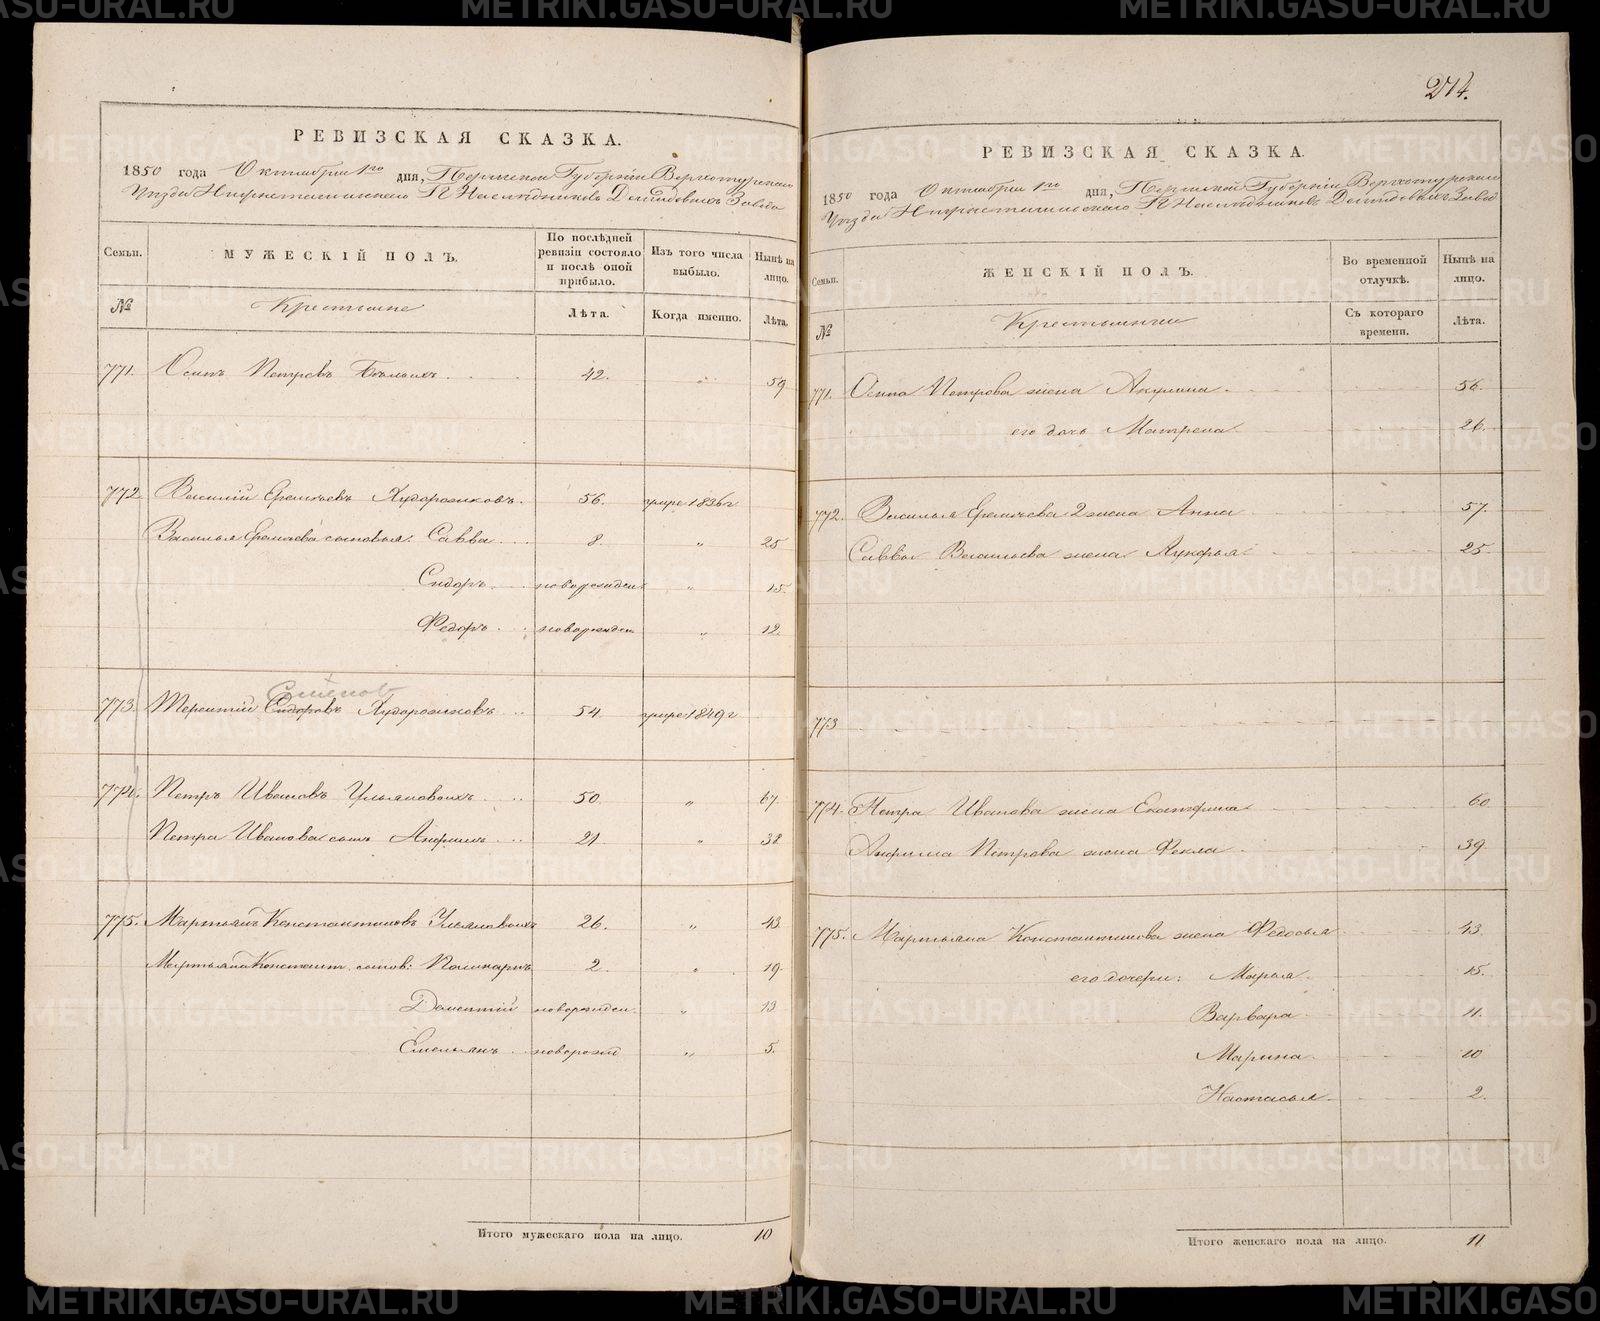 274.
РЕВИЗСКАЯ СКАЗКА.
1850 года Октября 1го дня, Пермской Губерніи Верхотурскаго
Уѣзда Нижнетагильскаго Наслѣдниковъ Демидовыхъ Завода
Семьи. МУЖЕСКІЙ ПОЛЪ. По послѣдней ревизіи состояло и послѣ оной прибыло. Изъ того числа выбыло. Нынѣ на лицо.
№ Крестьяне Лѣта. Когда именно. Лѣта.
771. Осипъ Петровъ Бѣлыхъ 42. „ 59
772 Василій Еремѣевъ Худорожковъ. 56. умре 1836 г
Василья Еремѣева сыновья: Савва 8. „ 25
Сидоръ новорожден „ 15.
Федоръ новорожден „ 12.
Семёнов
773. Терентій Сидоровъ Худорожковъ 54. умре 1849 г
774. Петръ Ивановъ Ульяновыхъ 50. „ 67.
Петра Иванова сынъ Анфимъ 21. „ 38
775. Мартьянъ Константиновъ Ульяновыхъ 26. „ 43
Мартьяна Констант. сынов: 2. „ 19
Дометтій новорожден. „ 13
Емельянъ новорожд „ 5.
Итого мужескаго пола на лицо. 10
РЕВИЗСКАЯ СКАЗКА.
1850 года Октября 1го дня, Пермской Губерніи Верхотурскаго
Уѣзда Нижнетагильскаго Наслѣдниковъ Демидовыхъ Завод
Семьи. ЖЕНСКІЙ ПОЛЪ. Во временной отлучкѣ. Нынѣ на лицо.
№ Крестьянки Съ котораго времени. Лѣта.
771. Осипа Петрова жена Акулина 56.
его дочь Матрена 26.
772. Василья Еремѣева 2 жена Анна 57.
Саввы Васильева жена Лукерья 25
773
774. Петра Иванова жена Екатерина 60
Анфима Петрова жена Фекла 39.
775. Мартьяна Константинова жена Федосья 43.
его дочери: Марья 15.
Варвара 11.
Марина 10
Настасья 2.
Итого женскаго пола на лицо. 11
METRIKI.GASO-URAL.RU